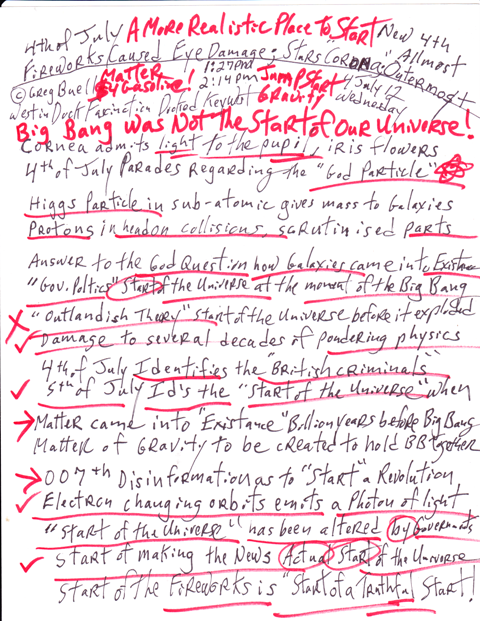 4th of July A More Realistic Place to Start New 4th
Fireworks Caused Eye Damage: Stars "Corona" Outermost Allmost
© Greg Buell Matter 4 Gasoline! 1:27pm 2:14pm Jump Start Gravity 4 July 12 Wednesday
West in Duct
Big Bang was Not the Start of Our Universe!
Cornea admits light to the pupil, iris flowers
4th of July Parades Regarding the "God Particle"
Higgs Particle in sub-atomic gives mass to Galaxies
Protons in headon collisions, scrutinised parts
Answer to the God Question how Galaxies came into Existence
"Gov. Poltics" Start of the Universe at the moment of the Big Bang
X "Outlandish Theory" start of the Universe before it exploded
✓ Damage to several decades of pondering physics
4th of July Identifies the "British criminals"
✓ 5th of July Id's the "start of the Universe" when
→ Matter came into "Existance" Billion years before Big Bang
Matter of Gravity to be created to hold BB together
→ 007th Disinformation as to "Start" a Revolution
✓ Electron changing orbits emits a Photon of light
"Start of the Universe" has been altered by Governments
✓ Start of making the News Actual Start of the Universe
Start of the Fireworks is "Start of a Truthful Start!